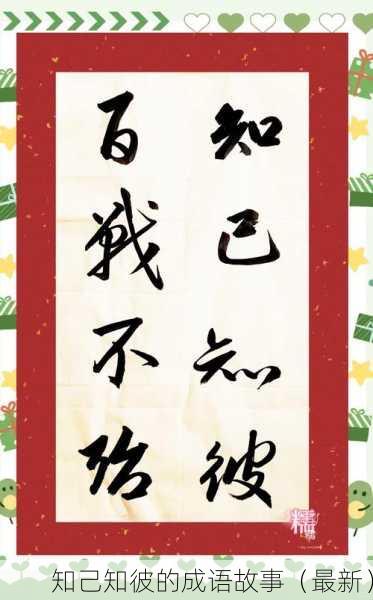 知己知彼
百戰不殆
知己知彼的成语故事（最新）